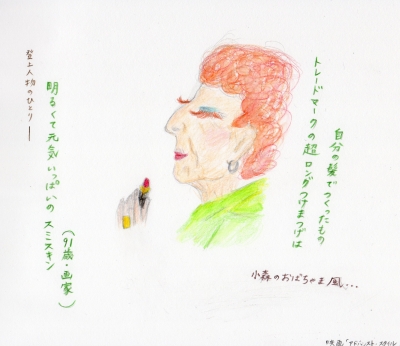 登場人物のひとり――
明るくて元気いっぱいの スミスキン
(91歳・画家)
トレードマークの超ロングつけまつげは
自分の髪でつくったもの
小森のおばちゃま風…
映画「アドバンスト・スタイル